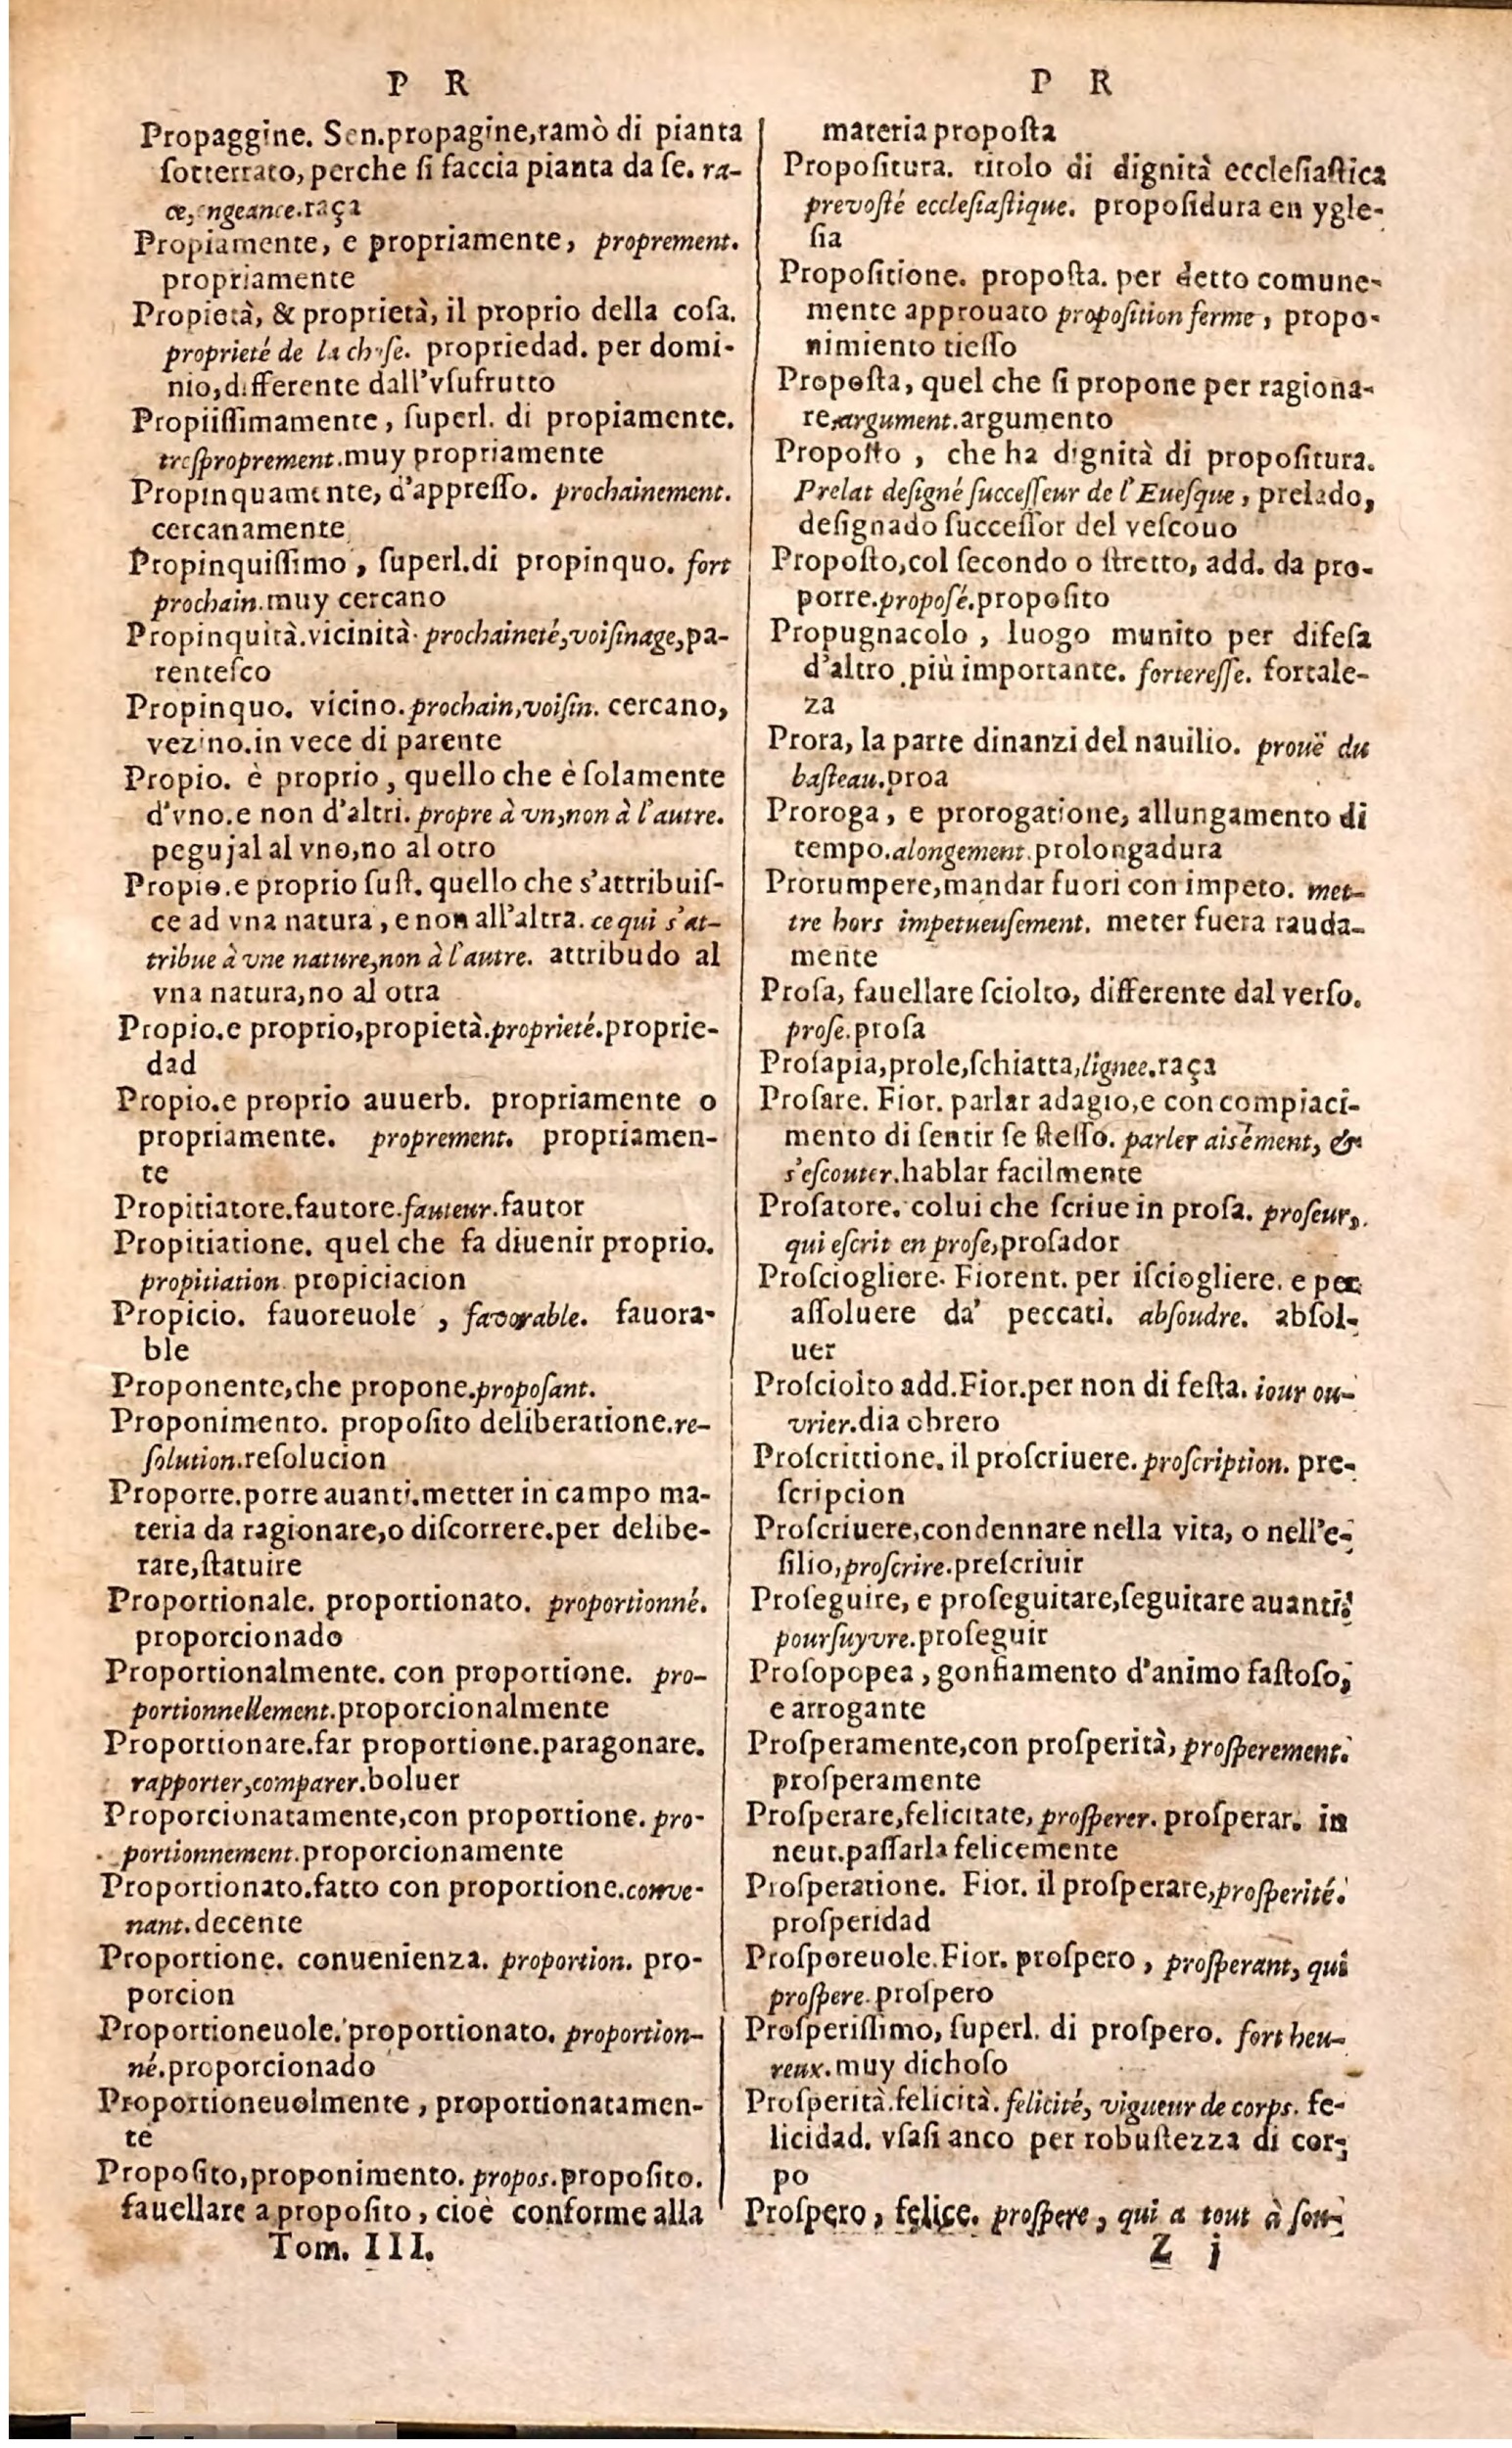 P R
Propaggine. Sen.propagine,ramò di pianta
ſotterrato, perche ſi faccia pianta da ſe. ra-
ce, engeance.raça
Propiamente, e propriamente, proprement.
propriamente
Propietà, & proprietà, il proprio della coſa.
proprieté de la choſe. propriedad. per domi-
nio,differente dall'vſufrutto
Propiiſſimamente, ſuperl. di propiamente.
treſproprement.muy propriamente
Propinquamente, d'appreſſo. prochainement.
cercanamente
Propinquiſſimo, ſuperl.di propinquo. fort
prochain.muy cercano
Propinquità.vicinità. prochaineté,voiſinage,pa-
renteſco
Propinquo. vicino.prochain,voiſin. cercano,
vezino.in vece di parente
Propio. è proprio, quello che è ſolamente
d'vno.e non d'altri. propre à vn,non à l'autre.
pegujal al vno,no al otro
Propio.e proprio ſuſt. quello che s'attribuiſ-
ce ad vna natura, e non all'altra. ce qui s'at-
tribue à vne nature,non à l'autre. attribudo al
vna natura,no al otra
Propio.e proprio,propietà.proprieté.proprie-
dad
Propio.e proprio auuerb. propriamente o
propriamente. proprement. propriamen-
te
Propitiatore.fautore.fauteur.fautor
Propitiatione. quel che fa diuenir proprio.
propitiation. propiciacion
Propicio. fauoreuole, favorable. fauora-
ble
Proponente,che propone.propoſant.
Proponimento. propoſito deliberatione.re-
ſolution.reſolucion
Proporre.porre auanti.metter in campo ma-
teria da ragionare,o diſcorrere.per delibe-
rare,ſtatuire
Proportionale. proportionato. proportionné.
proporcionado
Proportionalmente. con proportione. pro-
portionnellement.proporcionalmente
Proportionare.far proportione.paragonare.
rapporter,comparer.boluer
Proporcionatamente,con proportione. pro-
portionnement.proporcionamente
Proportionato.fatto con proportione.conve-
nant.decente
Proportione. conuenienza. proportion. pro-
porcion
Proportioneuole. proportionato. proportion-
né.proporcionado
Proportioneuolmente, proportionatamen-
te
Propoſito,proponimento. propos.propoſito.
fauellare a propoſito, cioè conforme alla
Tom. III.
P R
materia propoſta
Propoſitura. titolo di dignità eccleſiaſtica
prevoſté eccleſiaſtique. propoſidura en ygle-
ſia
Propoſitione. propoſta. per detto comune-
mente approuato propoſition ferme, propo-
nimiento tieſſo
Propoſta, quel che ſi propone per ragiona-
re.argument.argumento
Propoſto, che ha dignità di propoſitura.
Prelat deſigné ſucceſſeur de l'Eueſque, prelado,
deſignado ſucceſſor del veſcouo
Propoſto,col ſecondo o ſtretto, add. da pro-
porre.propoſé.propoſito
Propugnacolo, luogo munito per difeſa
d'altro più importante. fortereſſe. fortale-
za
Prora, la parte dinanzi del nauilio. prouë du
baſteau.proa
Proroga, e prorogatione, allungamento di
tempo.alongement.prolongadura
Prorumpere,mandar fuori con impeto. met-
tre hors impetueuſement. meter fuera rauda-
mente
Proſa, fauellare ſciolto, differente dal verſo.
proſe.proſa
Proſapia,prole,ſchiatta,lignee.raça
Proſare. Fior. parlar adagio,e con compiaci-
mento di ſentir ſe ſteſſo. parler aisément, &
s'eſcouter.hablar facilmente
Proſatore. colui che ſcriue in proſa. proſeur,
qui eſcrit en proſe,proſador
Proſciogliere. Fiorent. per iſciogliere. e per
aſſoluere da' peccati. abſoudre. abſol-
uer
Proſciolto add.Fior.per non di feſta. iour ou-
vrier.dia obrero
Proſcrittione. il proſcriuere. proſcription. pre-
ſcripcion
Proſcriuere,condennare nella vita, o nell'e-
ſilio,proſcrire.preſcriuir
Proſeguire, e proſeguitare,ſeguitare auanti.
pourſuyvre.proſeguir
Proſopopea, gonfiamento d'animo faſtoſo,
e arrogante
Proſperamente,con proſperità, proſperement.
proſperamente
Proſperare,felicitate, proſperer. proſperar. in
neut.paſſarla felicemente
Proſperatione. Fior. il proſperare,proſperité.
proſperidad
Proſporeuole.Fior. proſpero, proſperant, qui
proſpere. proſpero
Proſperiſſimo, ſuperl. di proſpero. fort heu-
reux.muy dichoſo
Proſperità.felicità. felicité, vigueur de corps. fe-
licidad. vſaſi anco per robuſtezza di cor-
po
Proſpero, felice. proſpere, qui a tout à ſou-
Z j